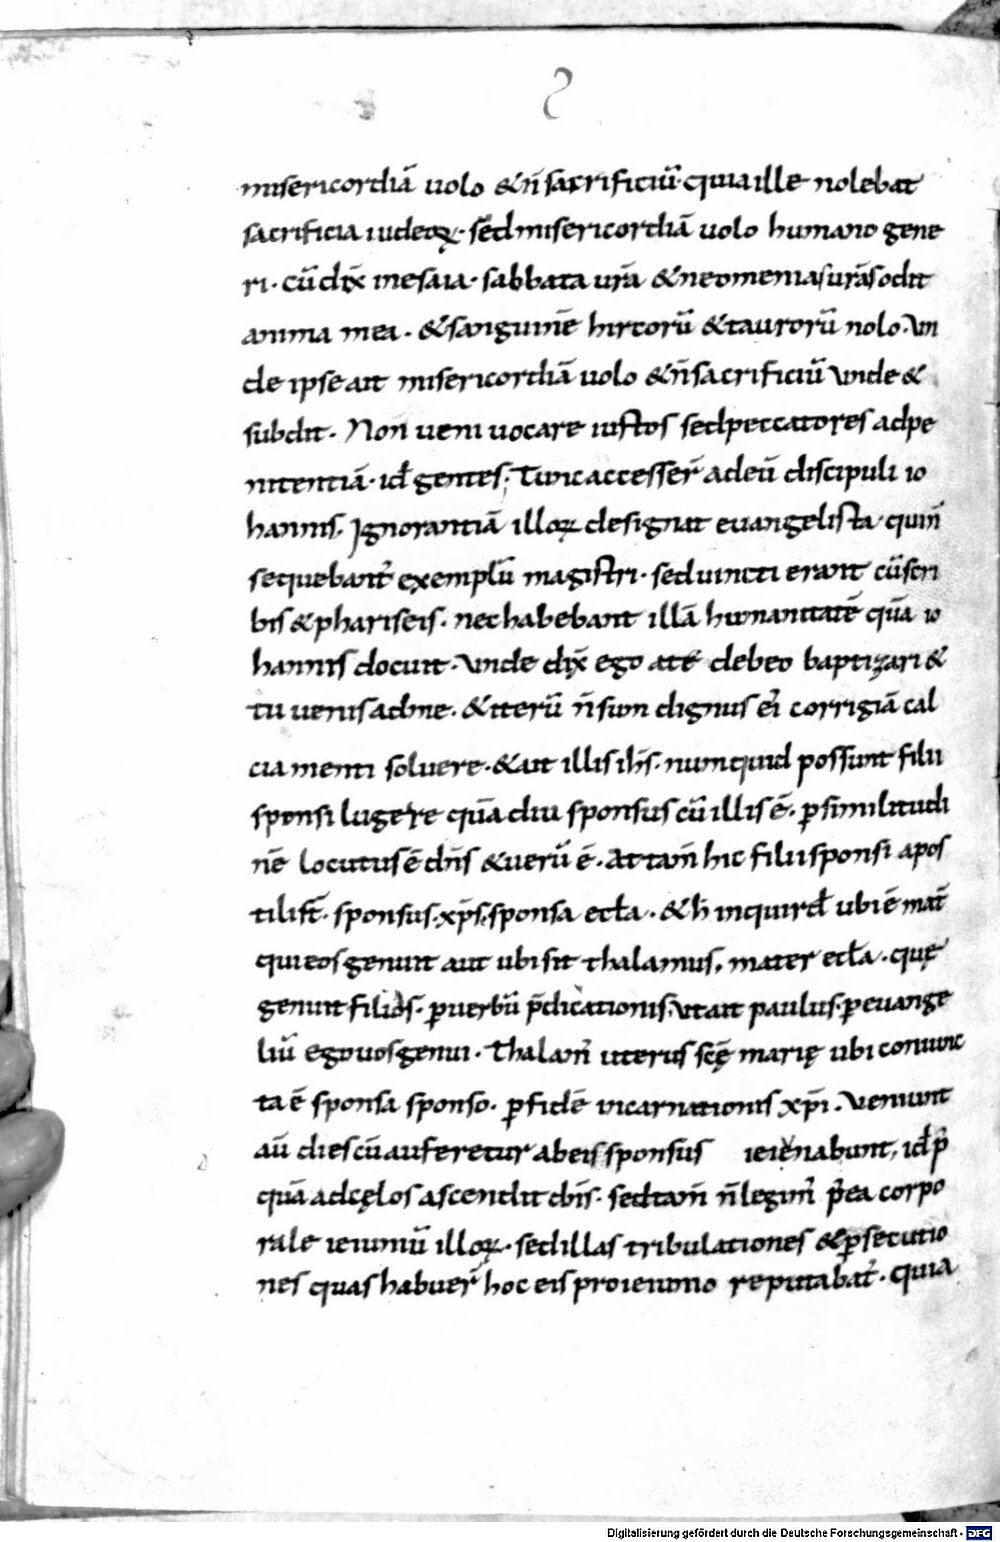 S
misericordiā uolo &n̄ sacrificiū· quia ille nolebat
sacrificia iudeoꝝ· sed misericordiā uolo humano gene
ri· cū dix̄ in esaia· sabbata ur̄a & neomenias ur̄as odit
anima mea· & sanguinē hircorū & taurorū nolo· Vn
de ipse ait misericordiā uolo & n̄ sacrificiū Vnde &
subdit· Non ueni uocare iustos sed peccatores ad pe
nitentiā· id̄ gentes· Tunc accesser̄ ad eū discipuli io
hannis· Ignorantiā illoꝝ designat euangelista qui n̄
sequebant᷑ exemplū magistri· sed uincti erant cū scri
bis & phariseis· nec habebant illā humanitatē quā io
hannis docuit· Vnde dix̄ ego a te debeo baptizari &
tu uenis ad me· & iterū n̄ sum dignus ei᷑ corrigiā cal
ciamenti soluere· & ait illis ih̄s· numquid possunt filii
sponsi lugere quādiu sponsus cū illis ē· ꝑ similitudi
nē locutus ē dn̄s & uerū ē· Attam̄ hic filii sponsi apos
tili st̄· sponsus xp̄s· sponsa eccl̄a· & h̄ inquird̄ ubi ē mat̄
qui eos genuit aut ubi sit thalamus, mater eccl̄a· quę
genuit filios· ꝑ uerbū p̄dicationis· Vt ait paulus· ꝑ euange
liū ego uos genui· Thalam᷑ uterus scę̄ marię ubi coniunc
ta ē sponsa sponso· ꝑ fidē incarnationis xp̄i· Venient
aū dies cū auferetur ab eis sponsus ieiunabunt, id̄ p᷑
quā ad cęlos ascendit dn̄s· sed tam̄ n̄ legim᷑ p̄ ea corpo
rale ieiuniū illoꝝ· sed illas tribulationes & ꝑsecutio
nes quas habuer̄ hoc eis pro ieiunio reputabat᷑· quia
Digitalisierung gefördert durch die Deutsche Forschungsgemeinschaft - DFG